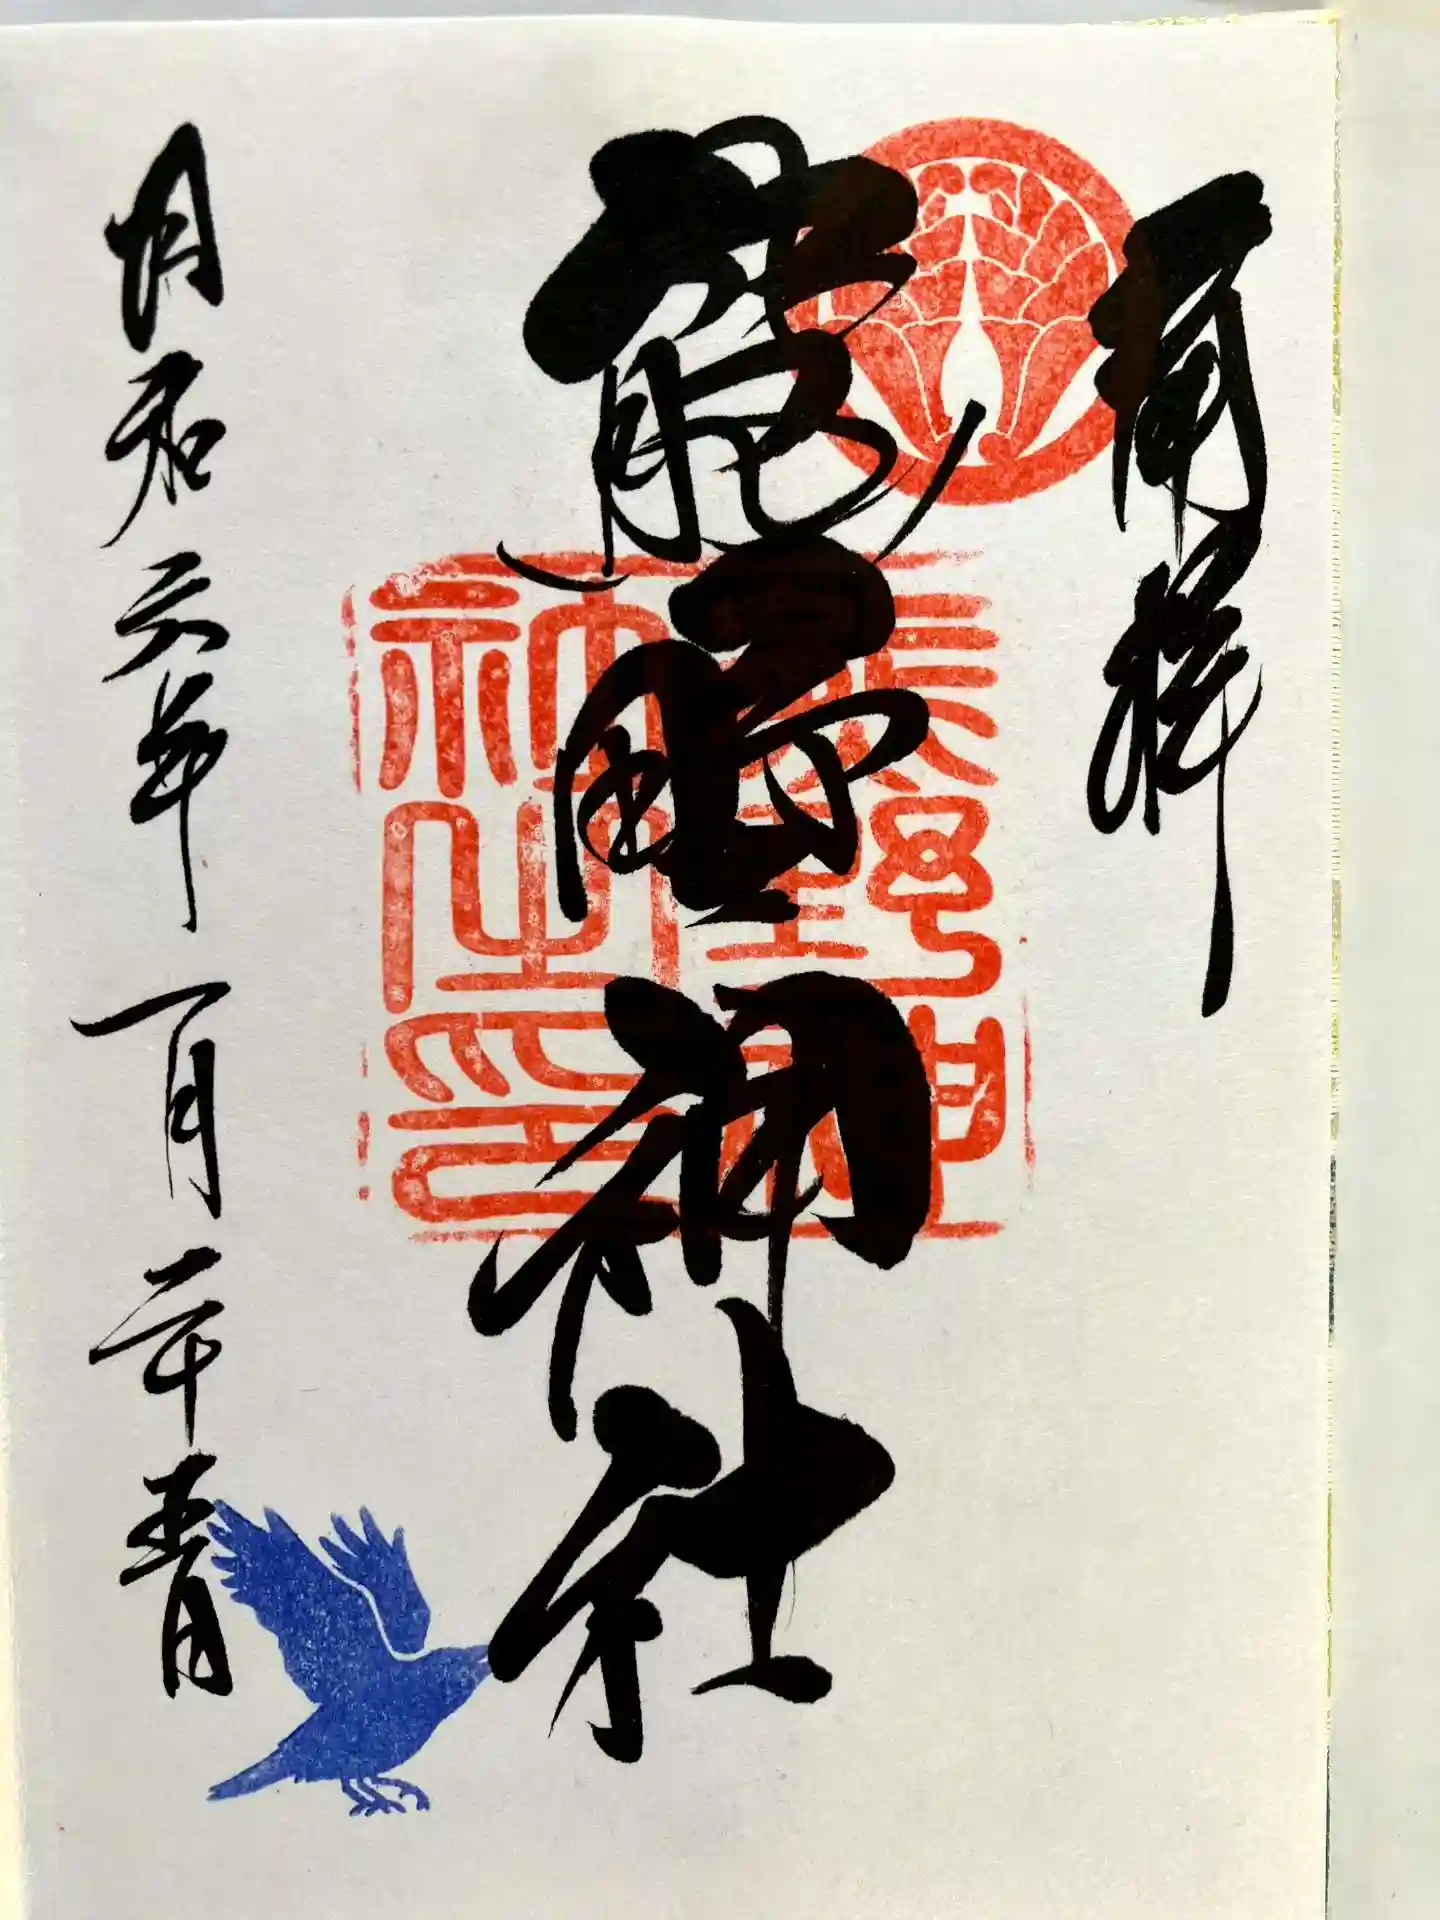 再拝
熊野神社
熊野神
社之印
令和六年一月二十五日